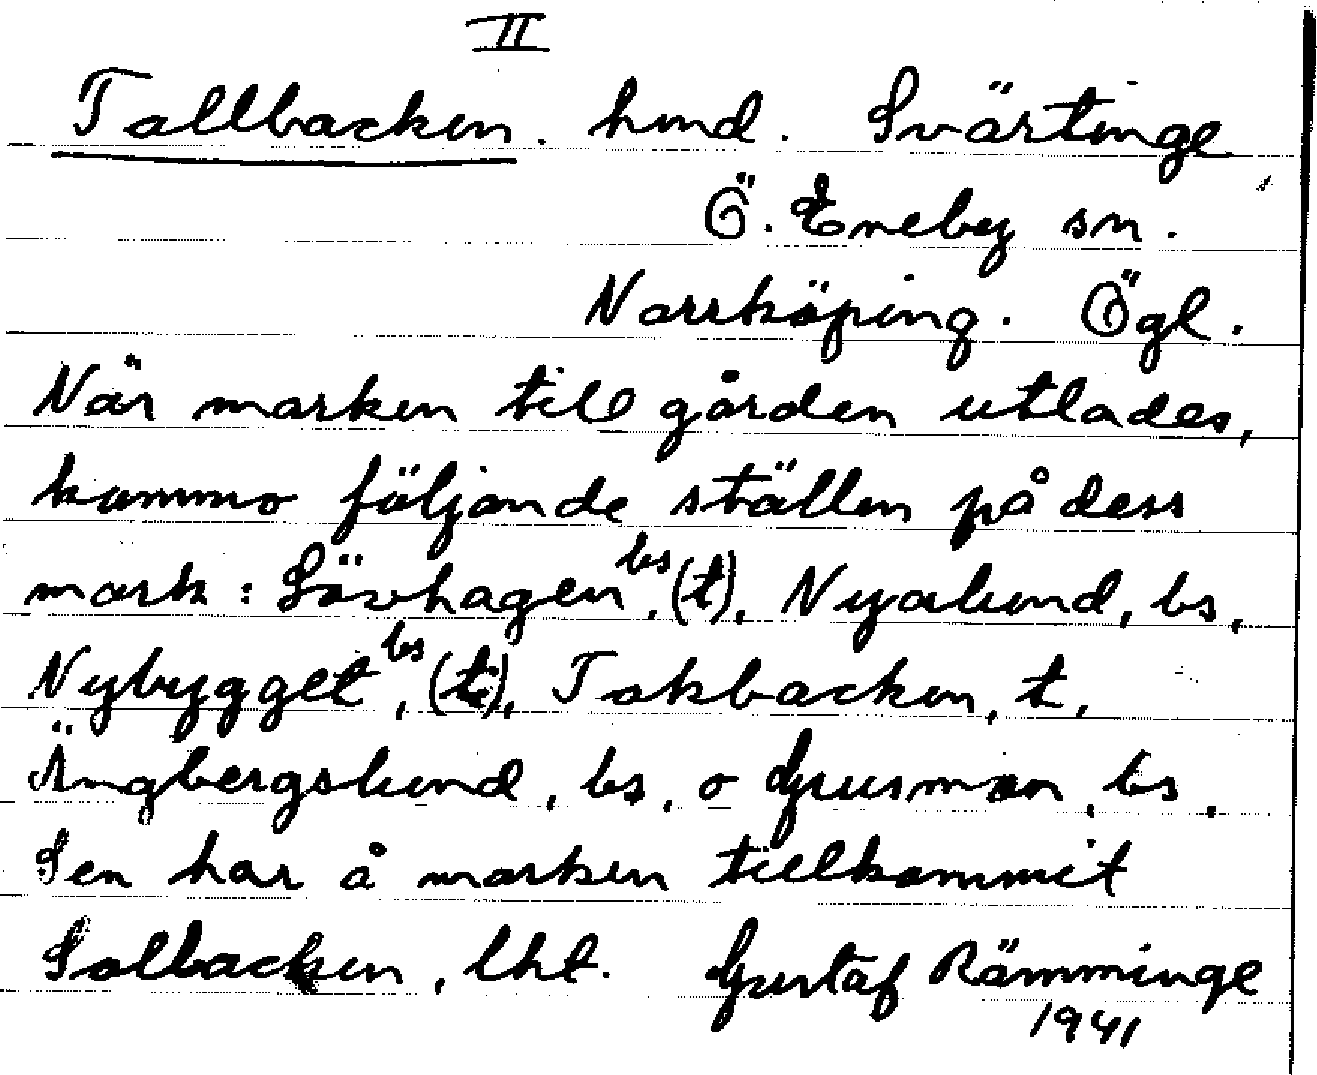 II
Tallbacken. hmd. Svärtinge
Ö. Eneby sn.
Norrköping. Ögl.
När marken till gården utlades,
kommo följande ställen på dess
mark: Lövhagen, bs (t), Nyalund, bs,
Nybygget, bs (t), Takbacken, t,
Ängbergslund, bs, o Grusman, bs.
Sen har å marken tillkommit
Solbacken, lht. Gustaf Rämminge
1941